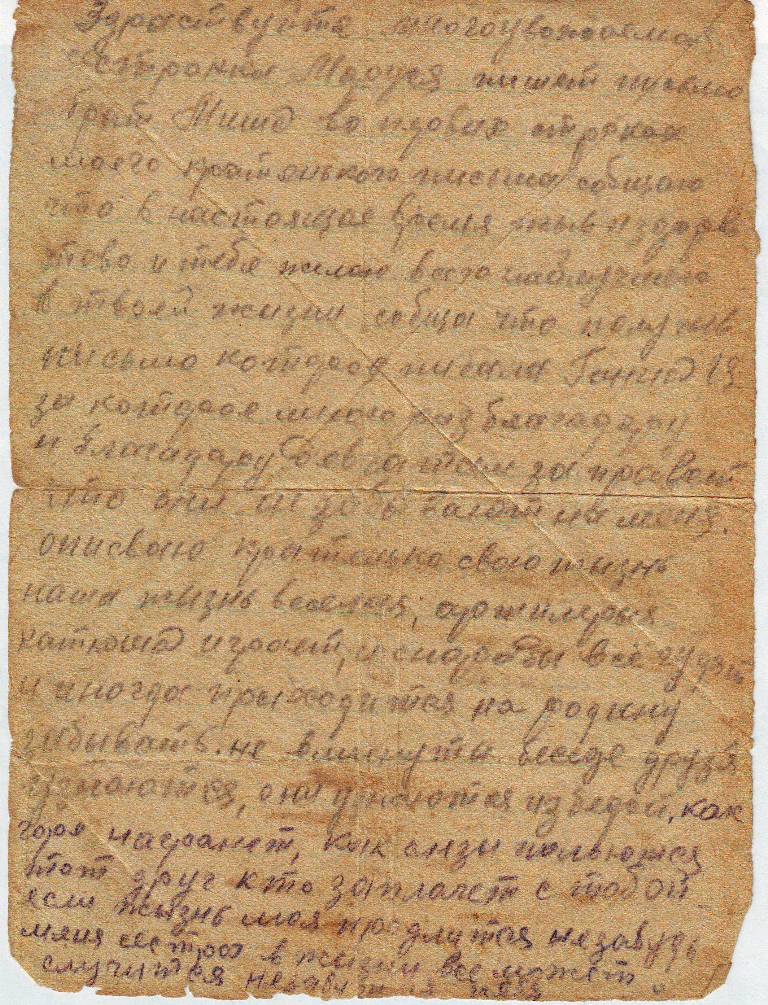 Здраствуйте многоуважаемая
сестрёнка Маруся пишет
брат Миша во первых строках
моего кратенького письма собщаю
что в настоящее время жыв и здоров
тово и тебе желаю всего наилучшего
в твоей жизни собща что получив
письмо которое писала
за которое миллион раз благадарю
и благадару девчатам за превет
что они не забывают на меня.
описваю кратенько свою жизнь
наша жызнь веселая, артилерыя
катюша играет, и снаряды все гудят
и иногда приходится на родину
забывать. не в минуты беседе друзя
узнаются, они узнаются из бедой, как
горе настанет, как слезы польются
тот друг кто заплачет с тобой
если жызнь моя продлится незабудь
меня сестра в жизни все может
случится